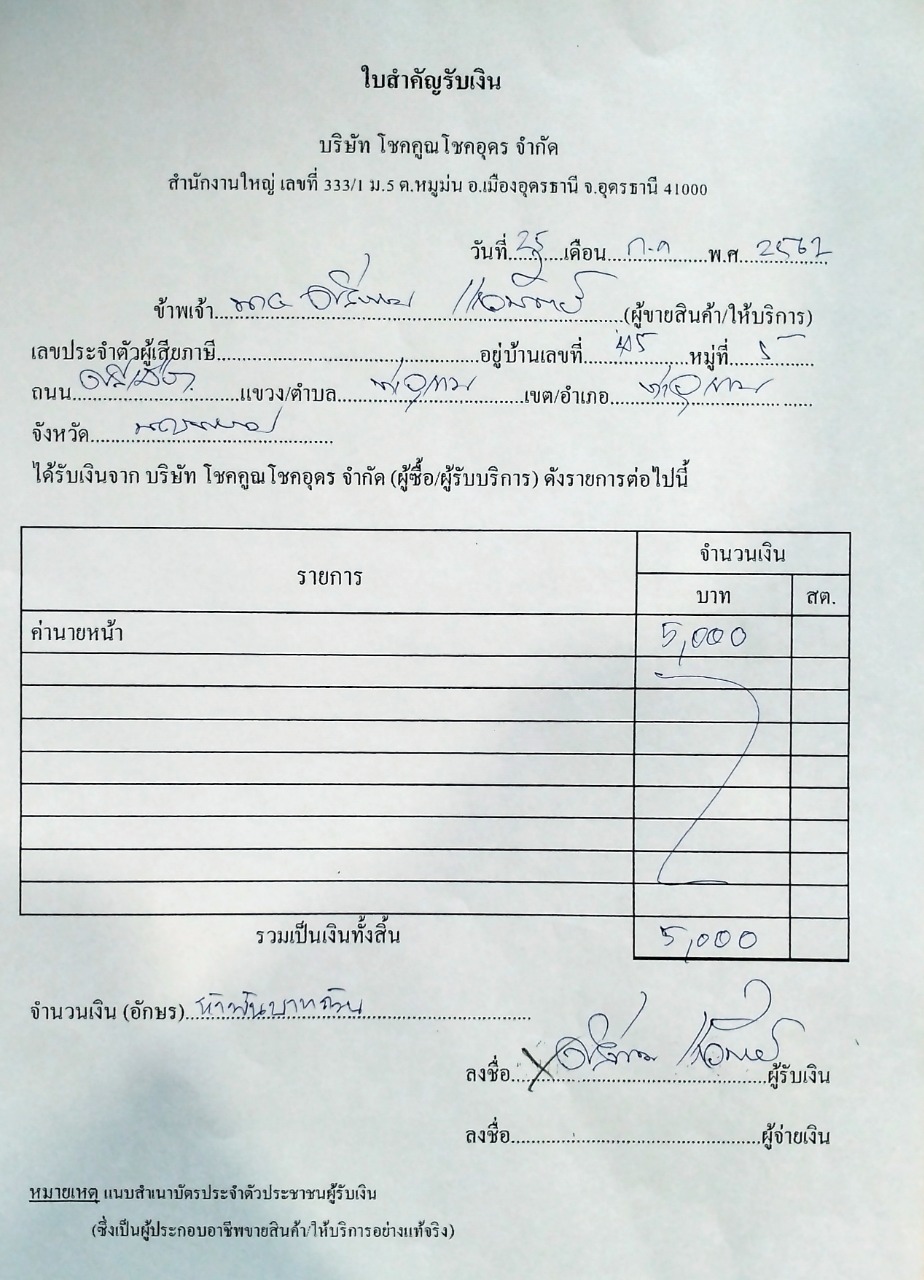 ใบสำคัญรับเงิน
บริษัท โชคคูณโชคอุดร จำกัด
สำนักงานใหญ่ เลขที่ 333/1 ม.5 ต.หมูม่น อ.เมืองอุดรธานี จ.อุดรธานี 41000
วันที่ 25 เดือน ก.ค พ.ศ 2562
ข้าพเจ้า (ผู้ขายสินค้า/ให้บริการ)
เลขประจำตัวผู้เสียภาษี อยู่บ้านเลขที่ หมู่ที่
ถนน แขวง/ตำบล เขต/อำเภอ
จังหวัด
ได้รับเงินจาก บริษัท โชคคูณโชคอุดร จำกัด (ผู้ซื้อ/ผู้รับบริการ) ดังรายการต่อไปนี้
รายการ จำนวนเงิน
บาท สต.
ค่านายหน้า 5,000
รวมเป็นเงินทั้งสิ้น 5,000
จำนวนเงิน (อักษร) ห้าพันบาทถ้วน
ลงชื่อ ผู้รับเงิน
ลงชื่อ ผู้จ่ายเงิน
หมายเหตุ แนบสำเนาบัตรประจำตัวประชาชนผู้รับเงิน
(ซึ่งเป็นผู้ประกอบอาชีพขายสินค้า/ให้บริการอย่างแท้จริง)